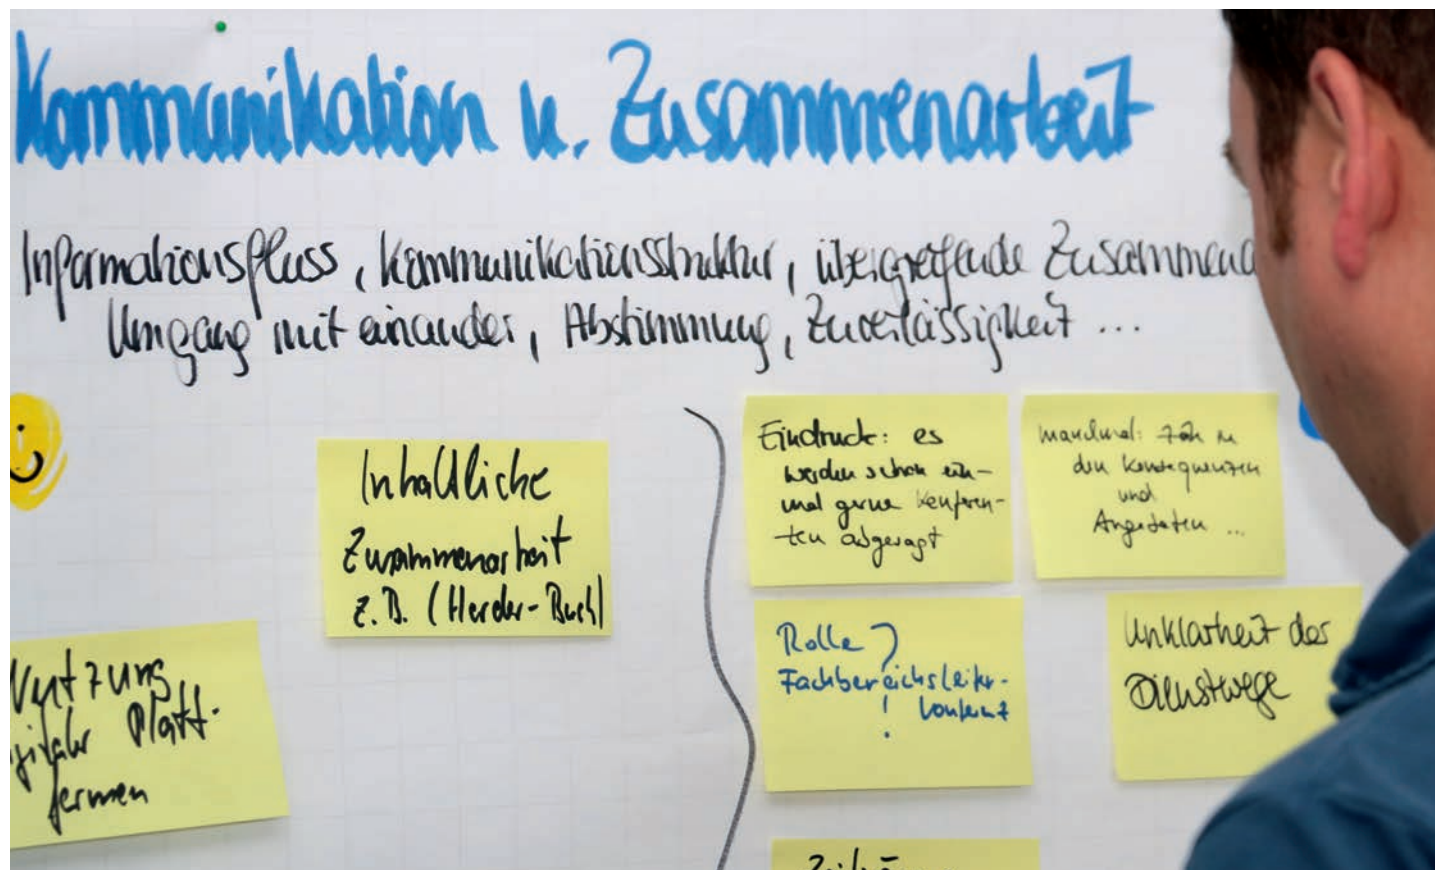 Kommunikation u. Zusammenarbeit
Informationsfluss, Kommunikationsstruktur, übergreifende Zusammena
Umgang miteinander, Abstimmung, Zuverlässigkeit ...
Inhaltliche
Zusammenarbeit
z.B. (Herder-Buch)
Nutzung
digitaler Platt-
formen
Eindruck: es
werden schon ein-
mal gerne Konferen-
zen abgesagt
manchmal: zäh in
den Konsequenzen
und
Rolle
Fachbereichsleiter-
konferenz
!
Unklarheit der
Dienstwege